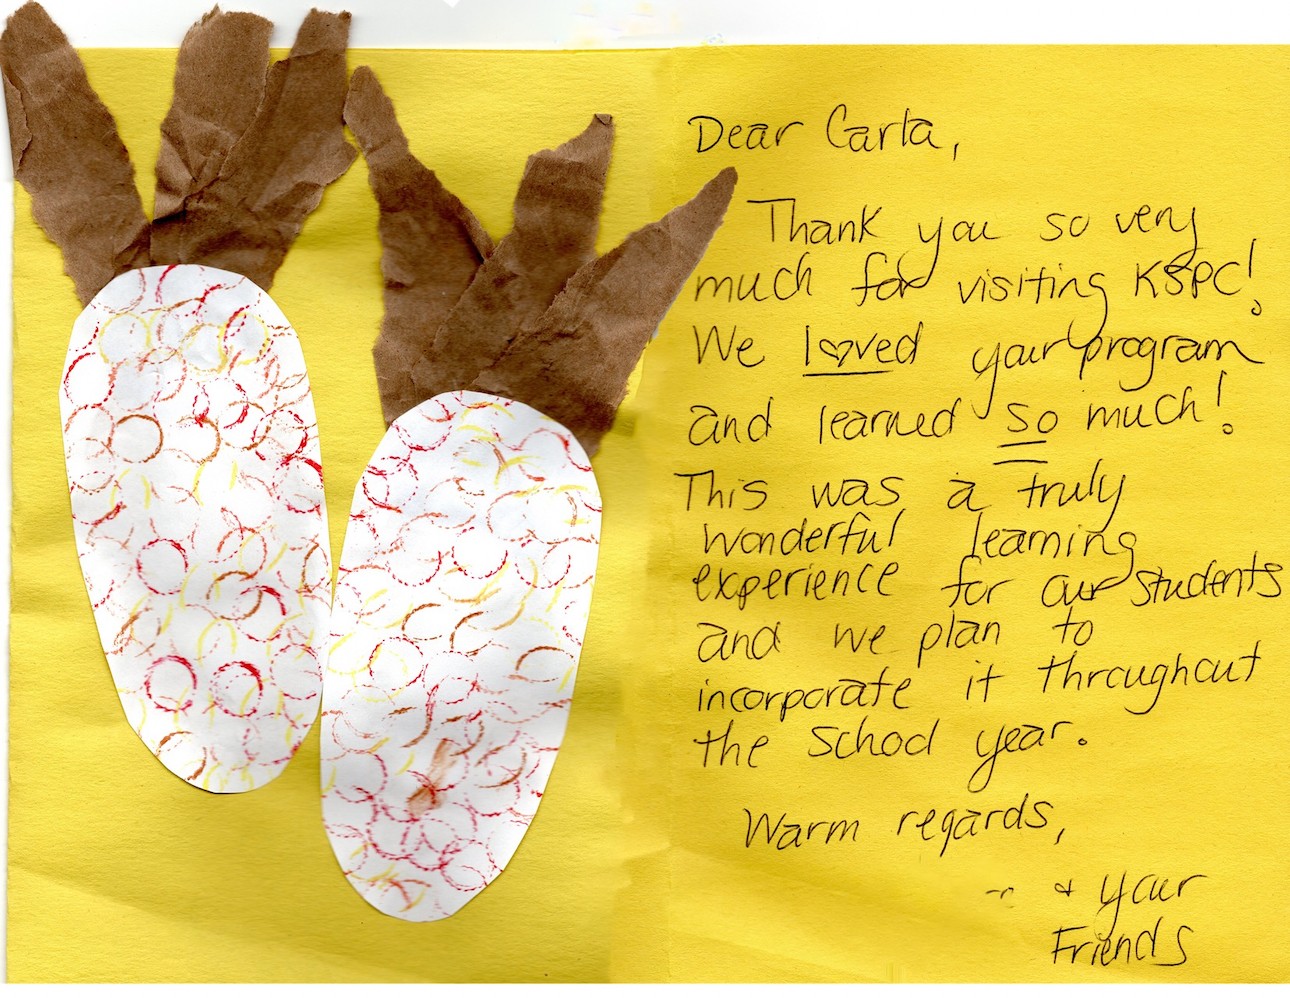 Dear Carla,
Thank you so very
much for visiting KSPC!
We loved your program
and learned so much!
This was a truly
wonderful learning
experience for our students
and we plan to
incorporate it throughout
the school year.
Warm regards,
+ your
Friends